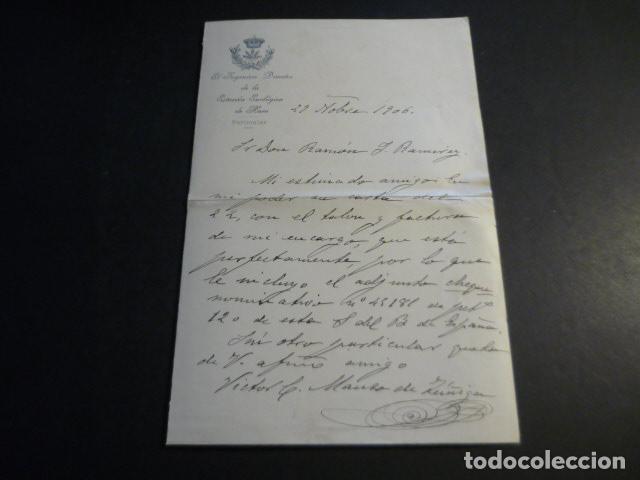 El Ingeniero Director
de la
Estación Enológica
de Haro
Particular
29 Nobre 1906.
Sr Don Ramón J. Ramirez.
Mi estimado amigo: En
mi poder su carta del
22, con el talon y factura
de mi encargo, que está
perfectamente, por lo que
le incluyo el adjunto cheque
nominativo nº 45181 de pts
120 de esta S del B de España.
Sin otro particular queda
de V. afmo amigo
Victor C. Manso de Zúñiga
todocoleccion.net